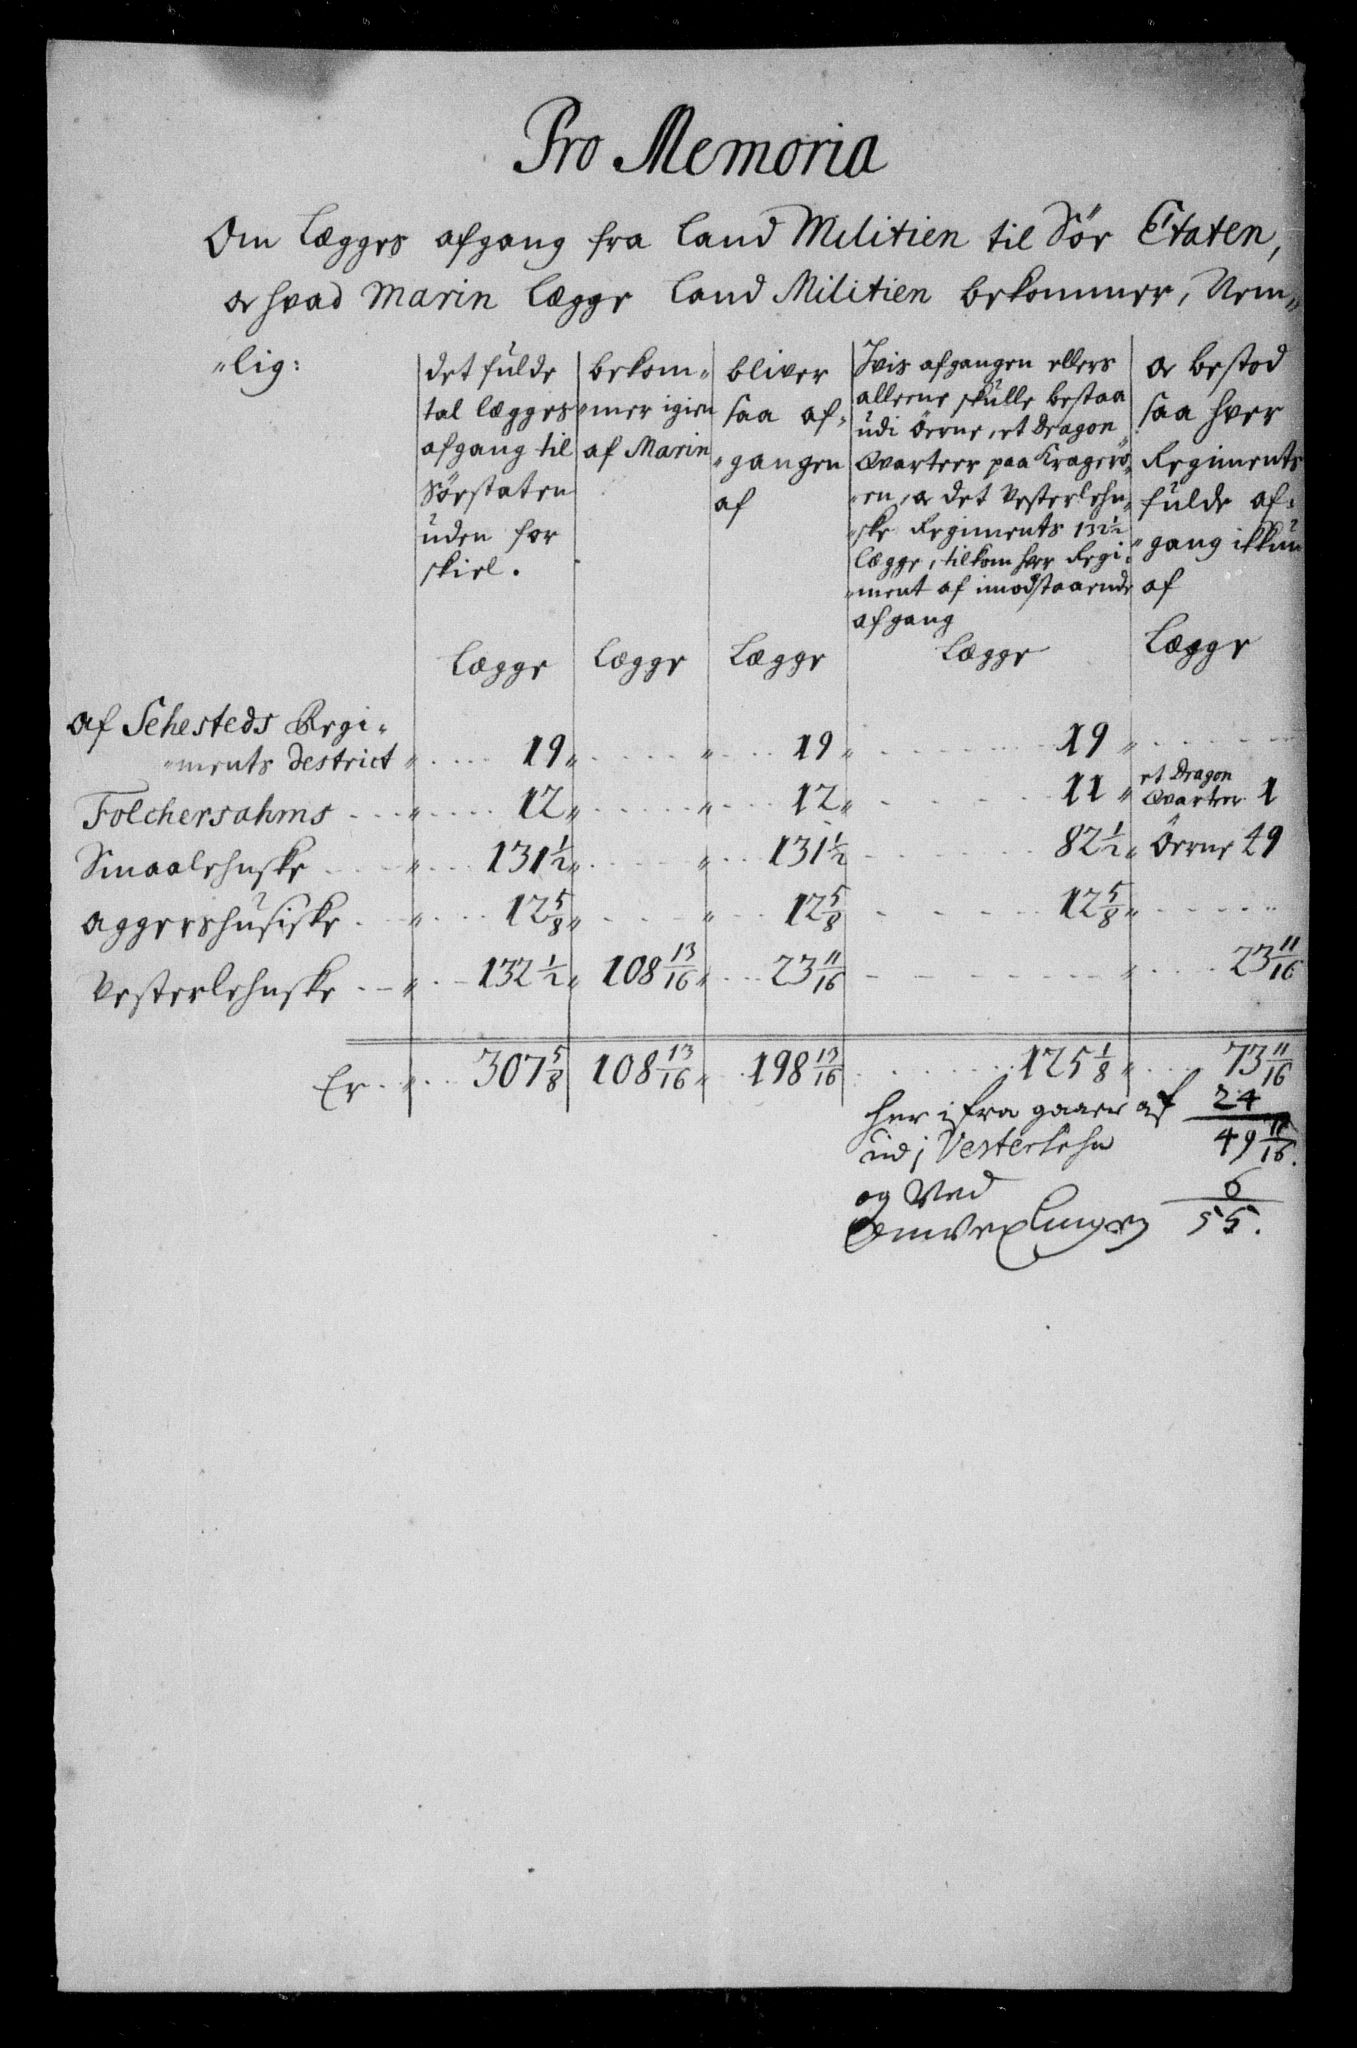 Pro Memoria
Om Lægges afgang fra Land Militien til Söe Etaten,
og hvad Marin Lægge Land Militien bekommer, Nem„
„lig:
det fulde
tal lægges
afgang til
Söestaten
uden for
skiel.
Lægge
bekom„
„mer igien
af Marin
Lægge
bliver
saa af„
„gangen
af
Lægge
Hvis afgangen ellers
alleene skulle bestaa
udi Öerne, et Dragon
Qvarteer paa Krageröe„
„en, og det Vesterlehn„
„ske Regiments 132½
Lægge, tilkom hver Regi„
„ment af imodstaaende
afgang
Lægge
og bestod
saa hver
Regiments
fulde af„
„gang ikkun
af
Lægge
Af Sehesteds Regi„
„ments destrict „ 19 „ „ 19 „ 19 „
Folchersahms „ 12 „ „ 12 „ 11 „ et Dragon Qvarteer 1
Smaalehnske „ 131½ „ „ 131½ 82½ „ Öerne 49
Aggershusiske „ 12 5/8 „ „ 12 5/8 12 5/8 „
Vesterlehnske „ 132½ „ 108 13/16 „ 23 11/16 „ 23 11/16
Er „ 307 5/8 108 13/16 „ 198 13/16 125 1/8 „ 73 11/16
her ifra gaaer af 24
ud i Vesterlehn 49 11/16.
og Ved 6
Omvexlingen 55.